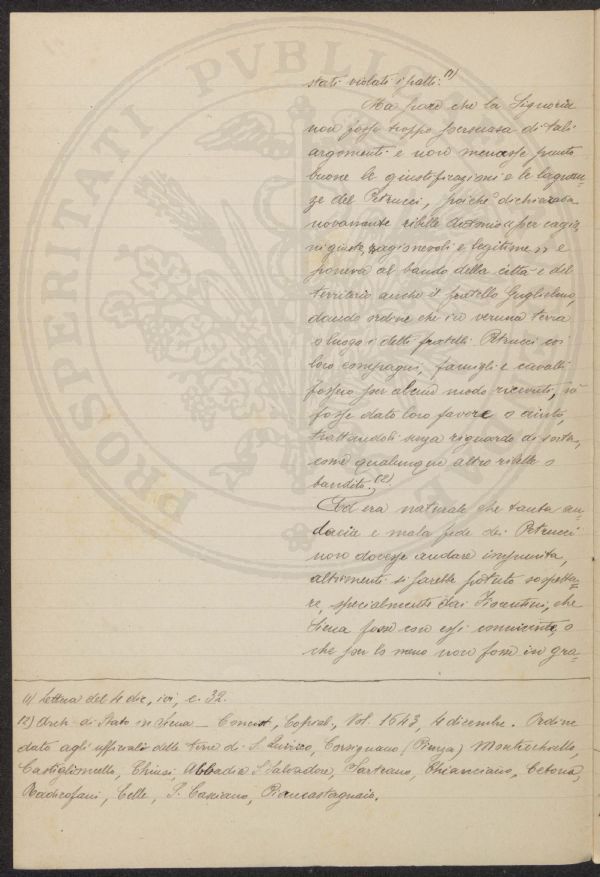 stati violati i patti. (1)
Ma pare che la Signoria
non fosse troppo persuasa di tali
argomenti e non menasse punto
buone le giustificazioni e le lagnan=
ze del Petrucci, poichè dichiarava
novamente ribelle Antonio « per cagio
ni giuste, ragionevoli e legitime » e
poneva al bando della città e del
territorio anche il fratello Guglielmo,
dando ordine che in veruna terra
o luogo i detti fratelli Petrucci coi
loro compagni, famigli e cavalli
fossero per alcun modo ricevuti, nè
fosse dato loro favore o aiuto,
trattandoli senza riguardo di sorta,
come qualunque altro ribelle o
bandito. (2)
Ed era naturale che tanta au=
dacia e mala fede dei Petrucci
non dovesse andare impunita,
altrimenti si sarebbe potuto sospetta=
re, specialmente dai Fiorentini, che
Siena fosse con essi connivente, o
che per lo meno non fosse in gra=
(1) Lettera del 4 dic., ivi, c. 32.
(2) Arch. di Stato in Siena - Concist., Copial., Vol. 1643, 4 dicembre. Ordine
dato agli ufficiali delle terre di S. Quirico, Corsignano (Pienza) Montechiello,
Castiglioncello, Chiusi, Abbadia S. Salvadore, Sarteano, Chianciano, Cetona,
Radicofani, Celle, S. Casciano, Piancastagnaio.
PROSPERITATI PVBLICAE